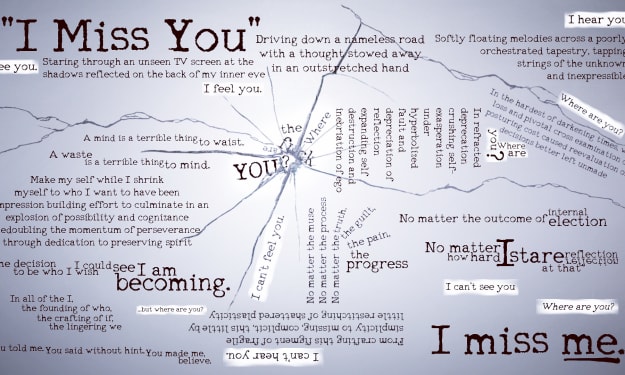 "I Miss You"
see you.
Staring through an unseen TV screen at the
shadows reflected on the back of my inner eye
I feel you.
Driving down a nameless road
with a thought stowed away
in an outstretched hand
I hear you
Softly floating melodies across a poorly
orchestrated tapestry, tapping
strings of the unknown
and inexpressible
Where are you?
In the hardest of darkening times
loss and pivotal cross examination of
posturing cost caused reevaluation of
decisions better left unmade
A mind is a terrible thing to waist.
A waste
is a terrible thing to mind.
the
Where
YOU?
inebriation of ego
destruction and
expanding self
reflection
depreciation of
fault and
hyperbolized
under
exasperation
crushing self-
deprecation
In refracted
you?
Where
are
Make my self while I shrink
myself to who I want to have been
impression building effort to culminate in an
explosion of possibility and cognizance
redoubling the momentum of perseverance
through dedication to preserving spirit
I can't feel you.
No matter the muse
No matter the process
No matter the truth,
the guilt,
the pain,
the
progress
No matter the outcome of internal
election
No matter
how hard I stare
reflection
at that"
the decision
to be who I wish
I could see I am
becoming.
I can't see you
In all of the I,
the founding of who,
the crafting of if,
the lingering we
...but where are you?
Where are you?
From crafting this figment of fragile
simplicity to missing, complicit this little by
little restitching of shattered plasticity
I can't hear you.
you told me. You said without hint. You made me,
believe.
I miss me.